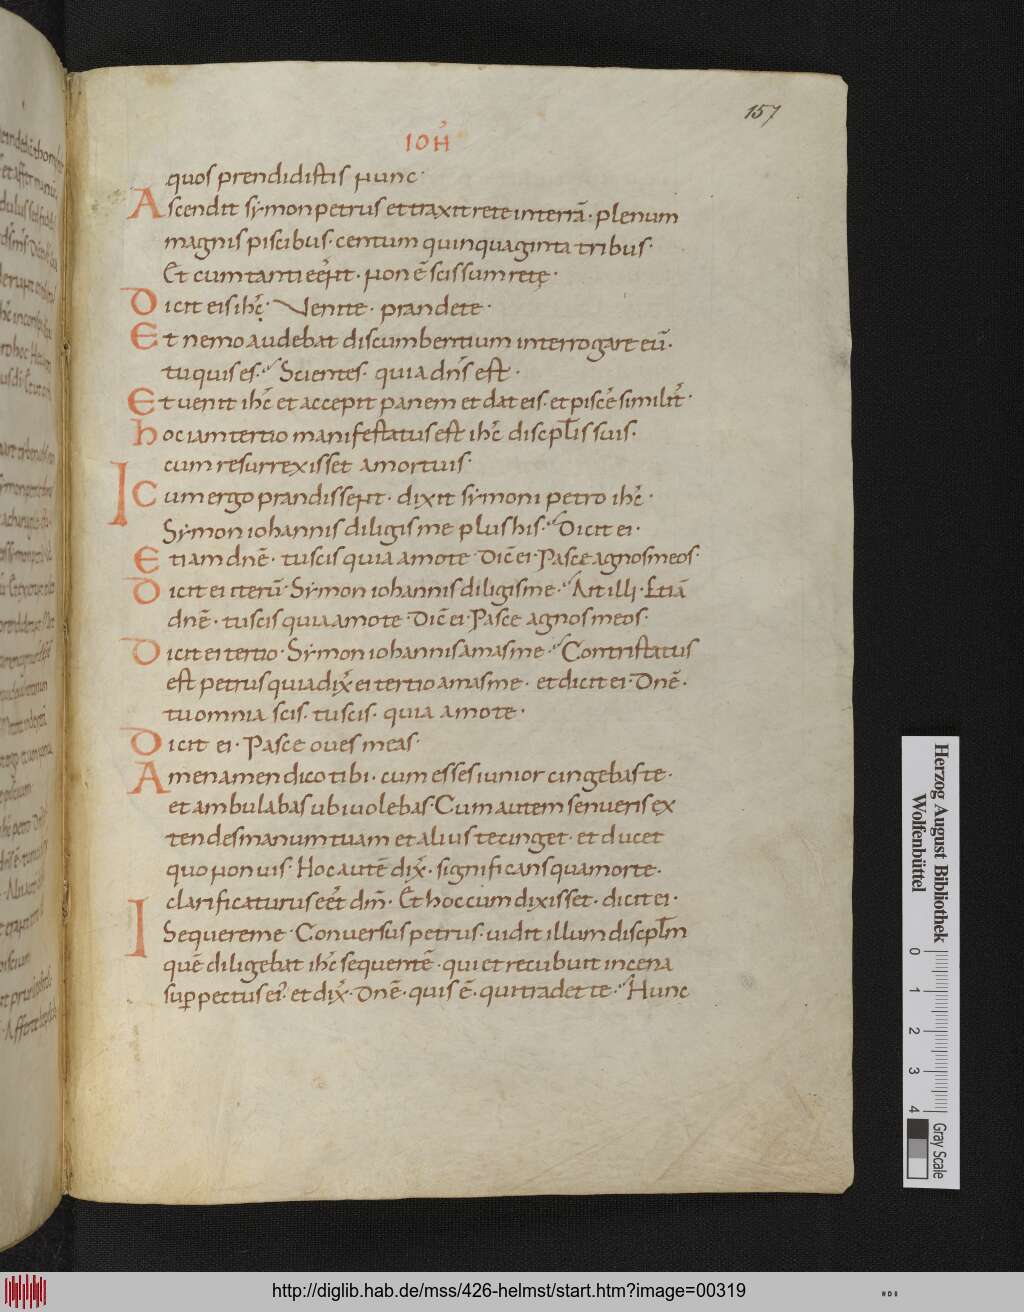 157
IOH̄
quos prendidistis nunc·
Ascendit symon petrus et traxit rete interrā· plenum
magnis piscibus· centum quinquaginta tribus·
Et cum tanti eēnt· non ē scissum retę·
Dicit eis ihc̄· Venite· prandete·
Et nemo audebat discumbentium interrogare eū·
tu quis es· Scientes· quia dn̄s est·
Et uenit ihc̄ et accepit panem et dat eis· et piscē similit̄·
hoc iam tertio manifestatus est ihc̄ discipl̄is suis·
cum resurrexisset amortuis·
I Cum ergo prandissent· dixit symoni petro ihc̄·
Symon iohannis diligis me plus his· Dicit ei·
Etiam dn̄e· tu scis quia amo te· Dic̄ ei· Pasce agnos meos·
Dicit ei iterū· Symon iohannis diligis me· Ait illi· Etiā
dn̄e· tu scis quia amo te· Dic̄ ei· Pasce agnos meos·
Dicit ei tertio· Symon iohannis amas me· Contristatus
est petrus quia dix̄ ei tertio amas me· et dicit ei· Dn̄e·
tu omnia scis· tu scis· quia amo te·
Dicit ei· Pasce oues meas·
Amen amen dico tibi· cum esses iunior cingebas te·
et ambulabas ubi uolebas· Cum autem senueris ex
tendes manum tuam et alius te cinget· et ducet
quo non uis· Hoc autē dix̄· significans qua morte·
clarificaturus eēt dm̄· Et hoc cum dixisset· dicit ei·
I Sequere me· Conuersus petrus· uidit illum discipl̄m
quē diligebat ihc̄ sequentē· qui et recubuit in cena
sup̄ pectus ei᾽· et dix̄· Dn̄e· quis ē· qui tradet te· Hunc
Herzog August Bibliothek
Wolfenbüttel
0 1 2 3 4
Gray Scale
http://diglib.hab.de/mss/426-helmst/start.htm?image=00319